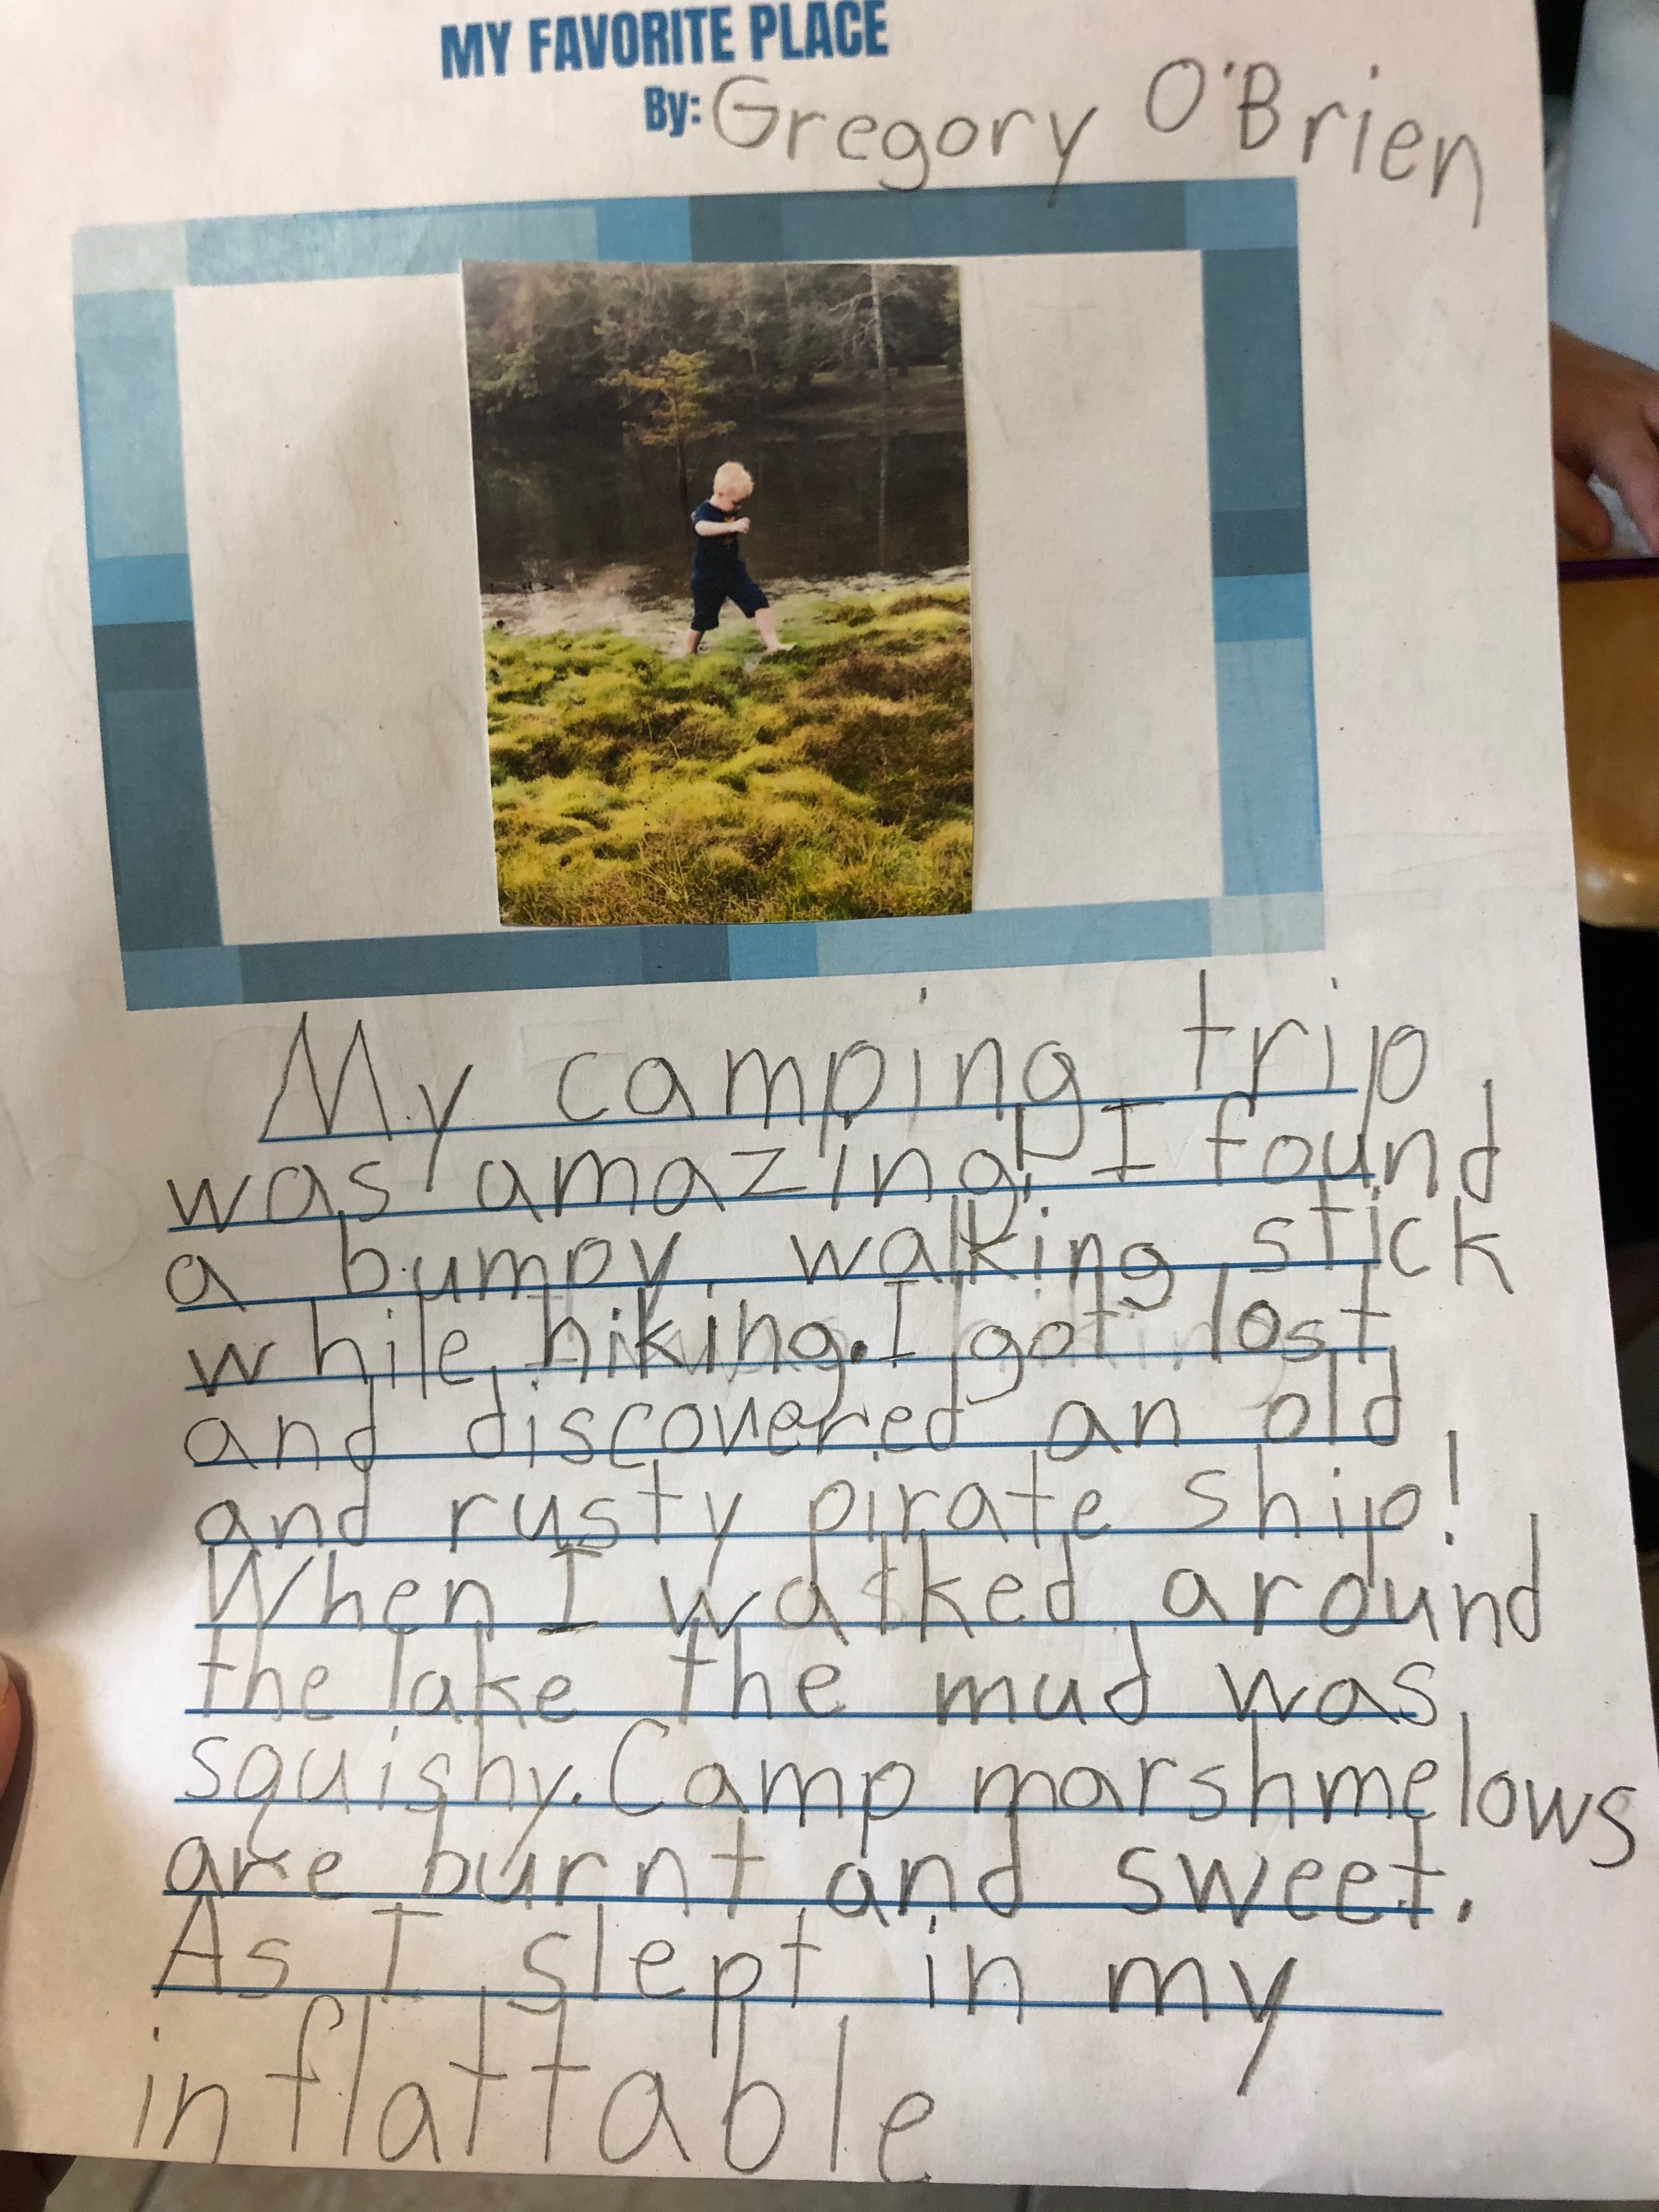 MY FAVORITE PLACE
By: Gregory O'Brien
My camping trip
was amazing! I found
a bumpy walking stick
while hiking. I got lost
and discovered an old
and rusty pirate ship!
When I walked around
the lake the mud was
squishy. Camp marshmelows
are burnt and sweet.
As I slept in my
inflattable